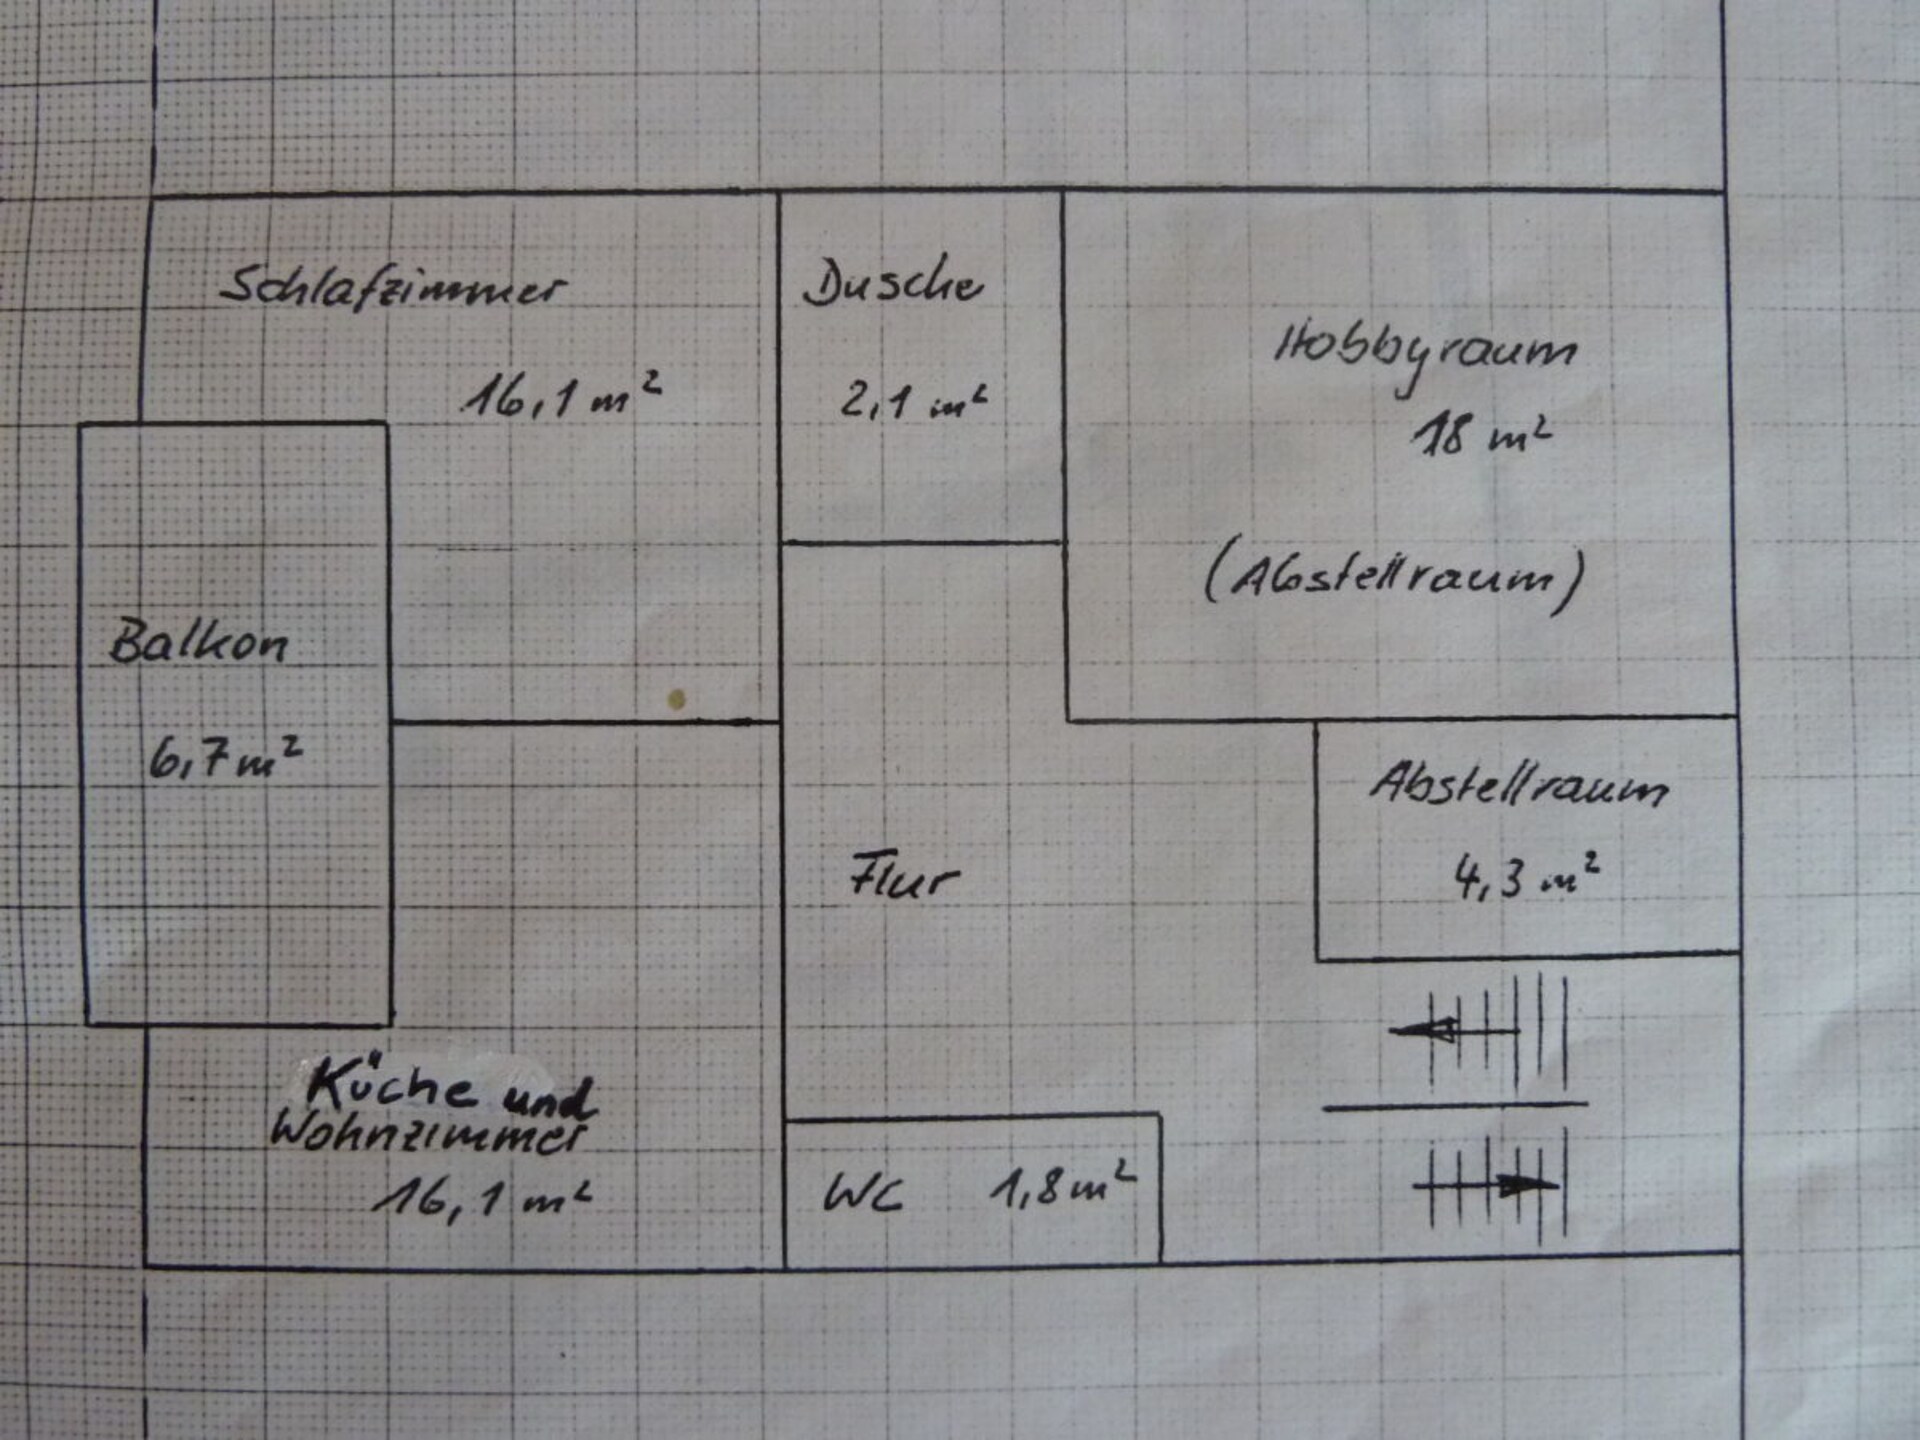 Schlafzimmer
16,1 m²
Dusche
2,1 m²
Hobbyraum
18 m²
(Abstellraum)
Balkon
6,7 m²
Flur
Abstellraum
4,3 m²
Küche und
Wohnzimmer
16,1 m²
WC 1,8 m²